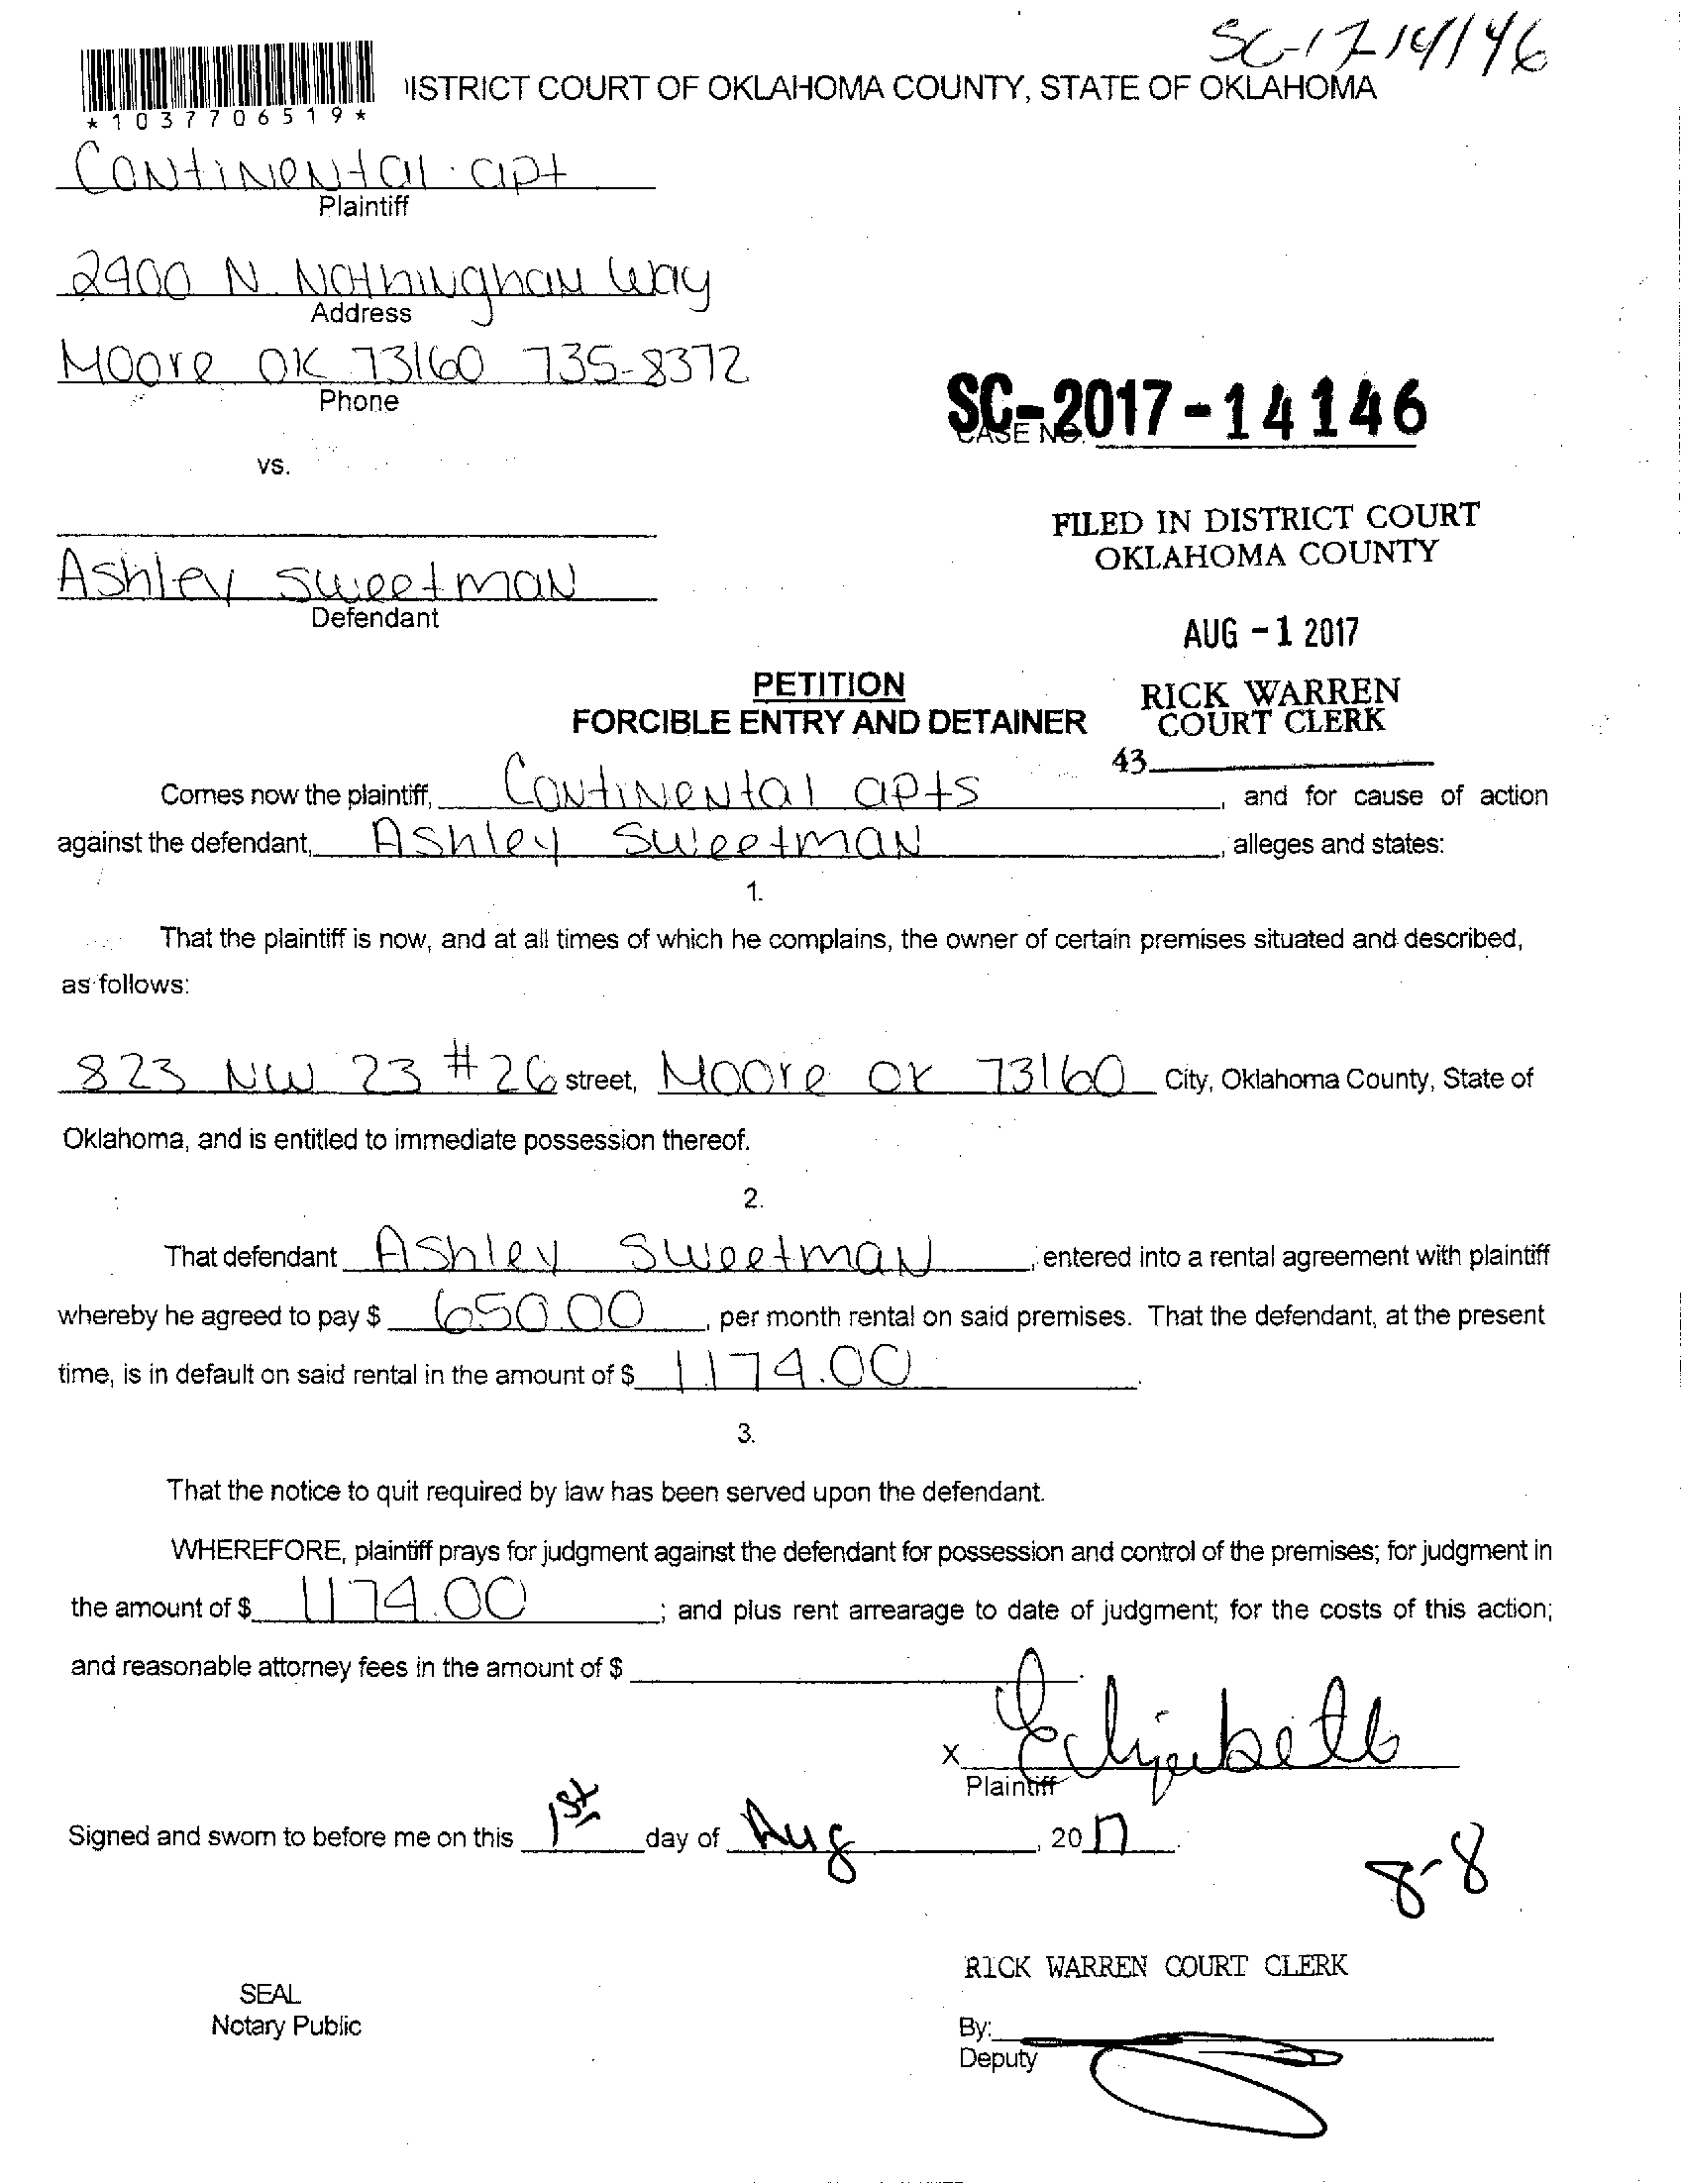 SC-17-14146
ISTRICT COURT OF OKLAHOMA COUNTY, STATE OF OKLAHOMA
*1037706519*
Continental apt
Plaintiff
2900 N. Nothingham Way
Address
Moore OK 73160 735-8372
Phone
SC-2017-14146
CASE NO.
vs.
FILED IN DISTRICT COURT
OKLAHOMA COUNTY
Ashley Sweetman
Defendant
AUG -1 2017
PETITION
FORCIBLE ENTRY AND DETAINER
RICK WARREN
COURT CLERK
43
Comes now the plaintiff, Continental apts, and for cause of action
against the defendant, Ashley Sweetman, alleges and states:
1.
That the plaintiff is now, and at all times of which he complains, the owner of certain premises situated and described,
as follows:
823 NW 23 #26 street, Moore OK 73160 City, Oklahoma County, State of
Oklahoma, and is entitled to immediate possession thereof.
2.
That defendant Ashley Sweetman, entered into a rental agreement with plaintiff
whereby he agreed to pay $ 650.00, per month rental on said premises. That the defendant, at the present
time, is in default on said rental in the amount of $ 1174.00.
3.
That the notice to quit required by law has been served upon the defendant.
WHEREFORE, plaintiff prays for judgment against the defendant for possession and control of the premises; for judgment in
the amount of $ 1174.00; and plus rent arrearage to date of judgment; for the costs of this action;
and reasonable attorney fees in the amount of $
x Elizabeth
Plaintiff
Signed and sworn to before me on this 1st day of Aug, 2017.
8-8
RICK WARREN COURT CLERK
SEAL
Notary Public
By:
Deputy